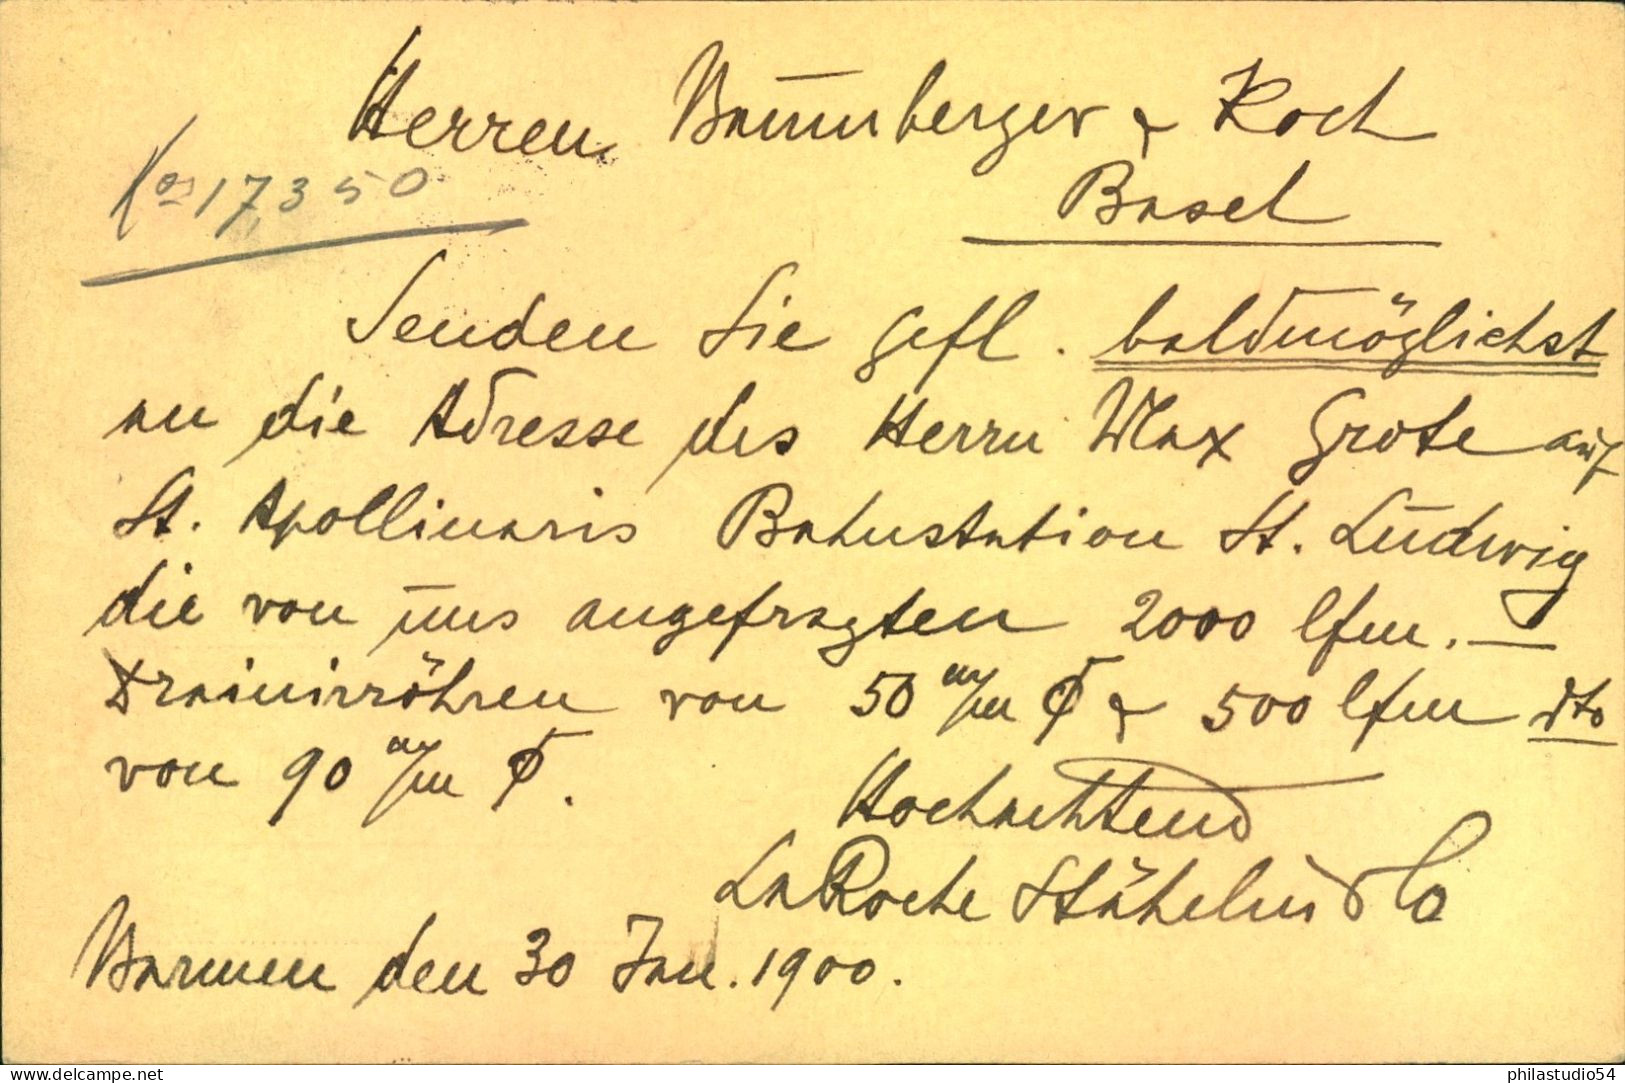 Herren Baumberger & Koch
Kos 17350
Basel
Senden Sie gefl. baldmöglichst
an die Adresse des Herrn Max Grote auf
St. Apollinaris Bahnstation St. Ludwig
die von uns angefragten 2000 lfm. —
Drainirröhren von 50 m/m Φ & 500 lfm dto
von 90 m/m Φ.
Hochachtend
LaRoche Stähelin & Co
Barmen den 30 Jan. 1900.
www.delcampe.net
philastudio54